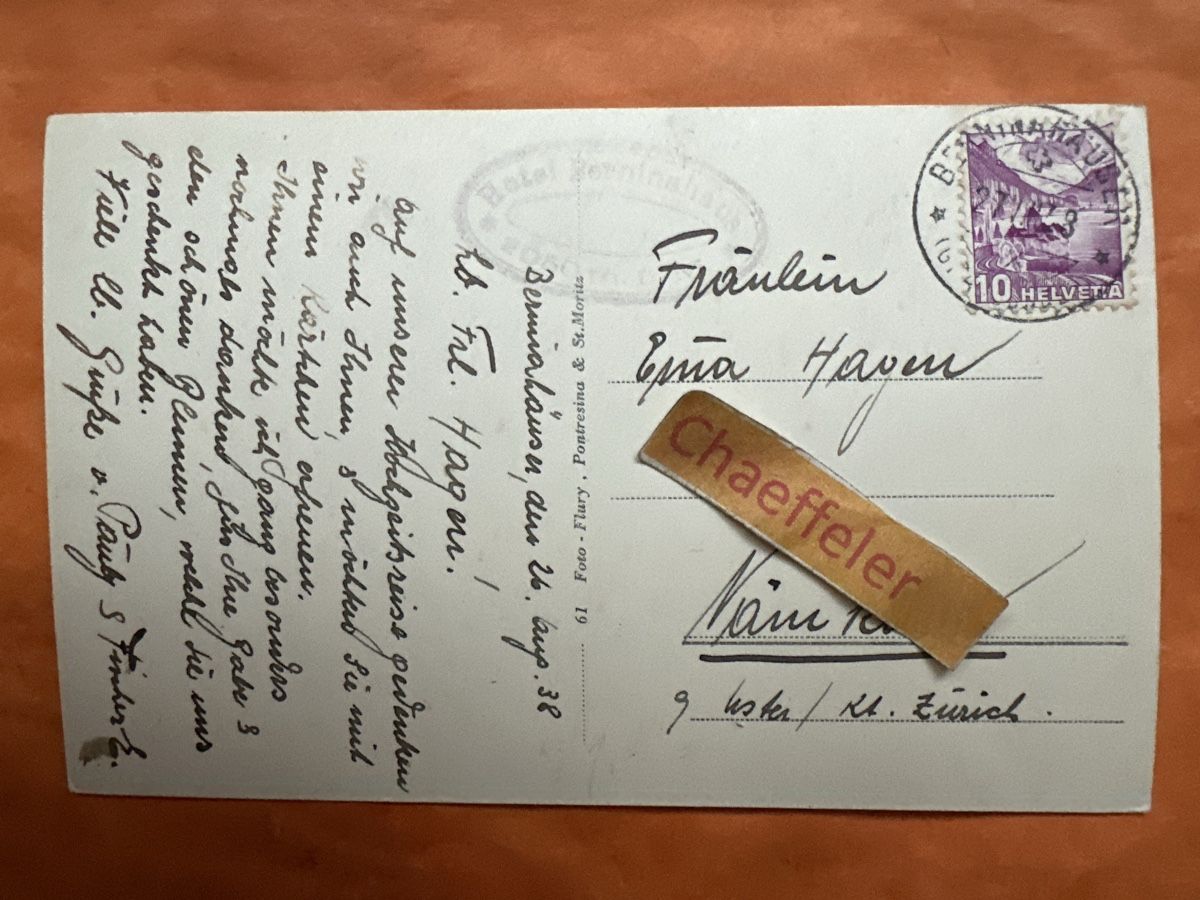 Berninahäuser, den 26. Aug. 38
Lb. Frl. Hagen!
Auf unserer Hochzeitsreise gedenken
wir auch Ihnen, & möchten Sie mit
einem Kärtchen erfreuen.
Ihnen möcht ich ganz besonders
nochmals danken für Ihre Gabe &
den schönen Blumen, welche Sie uns
geschenkt haben.
Viele lb. Grüße v.
Hotel Berninahaus
61 Foto - Flury, Pontresina & St. Moritz
BERNINAHÄUSER
10 HELVETIA
Fräulein
Hagen
Chaeffeler
Uster / Kt. Zürich.